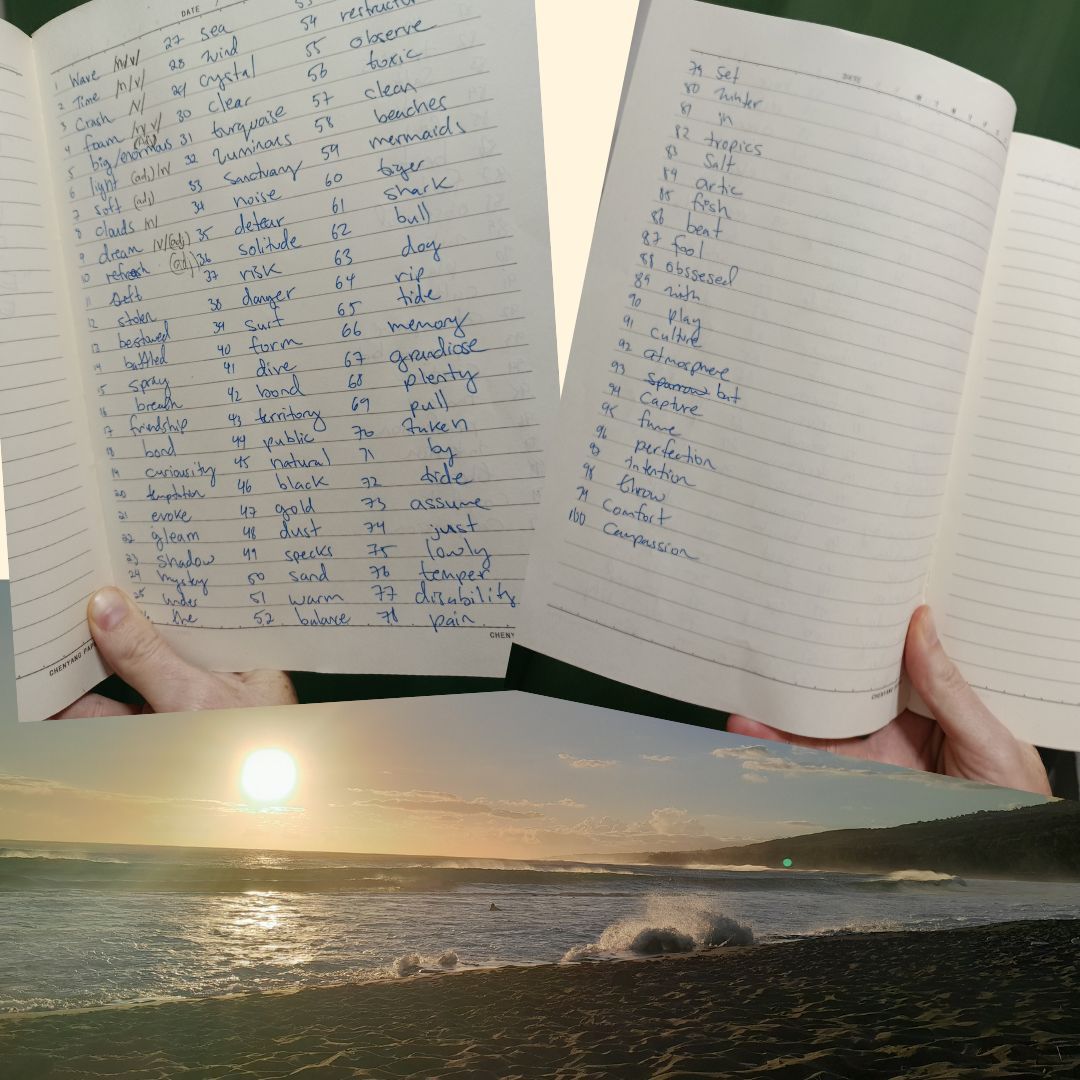 DATE
1 Wave /n/v/
2 Time /n/v/
3 Crash /v/
4 foam /n/v/
5 big/enormous (adj)
6 light (adj)/n/
7 soft (adj)
8 clouds /n/
9 dream /v/(adj)
10 refresh (adj)
11 Seft
12 stolen
13 bestowed
14 battled
15 spray
16 breach
17 friendship
18 bond
19 curiousity
20 temptation
21 evoke
22 gleam
23 shadow
24 mystery
25 under
the
27 sea
28 wind
29 crystal
30 clear
31 turquoise
32 luminous
33 sanctuary
34 noise
35 detear
36 solitude
37 risk
38 danger
39 surf
40 form
41 dive
42 bond
43 territory
44 public
45 natural
46 black
47 gold
48 dust
49 specks
50 sand
51 warm
52 balance
53
54
55 observe
56 toxic
57 clean
58 beaches
59 mermaids
60 tiger
61 shark
62 bull
63 dog
64 rip
65 tide
66 memory
67 grandiose
68 plenty
69 pull
70 taken
71 by
72 side
73 assume
74 just
75 lowly
76 temper
77 disability
78 pain
CHENYANG PAP
CHENY
DATE
79 set
80 winter
81 in
82 tropics
83 Salt
84 artic
85 fish
86 beat
87 fool
88 obssesed
89 with
90 play
91 culture
92 atmosphere
93 Sparrow but
94 capture
95 fume
96 perfection
97 intention
98 throw
99 Comfort
100 Compassion